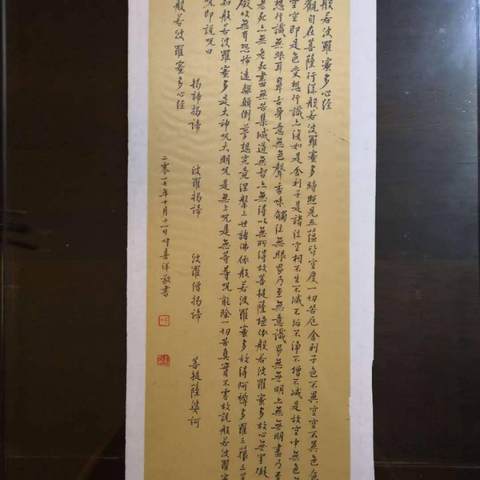 般若波羅蜜多心經
觀自在菩薩行深般若波羅蜜多時照見五蘊皆空度一切苦厄舍利子色不異空空不異色色
空空即是色受想行識亦復如是舍利子是諸法空相不生不滅不垢不淨不增不減是故空中無色
想行識無眼耳鼻舌身意無色聲香味觸法無眼界乃至無意識界無無明亦無無明盡乃至
老死亦無老死盡無苦集滅道無智亦無得以無所得故菩提薩埵依般若波羅蜜多故心無罣礙
故無有恐怖遠離顛倒夢想究竟涅槃三世諸佛依般若波羅蜜多故得阿耨多羅三藐三菩
知般若波羅蜜多是大神咒大明咒是無上咒是無等等咒能除一切苦真實不虛故說般若波羅蜜
咒即說咒曰
揭諦揭諦 波羅揭諦 波羅僧揭諦 菩提薩婆訶
般若波羅蜜多心經
二零一七年十月十一日 敬書